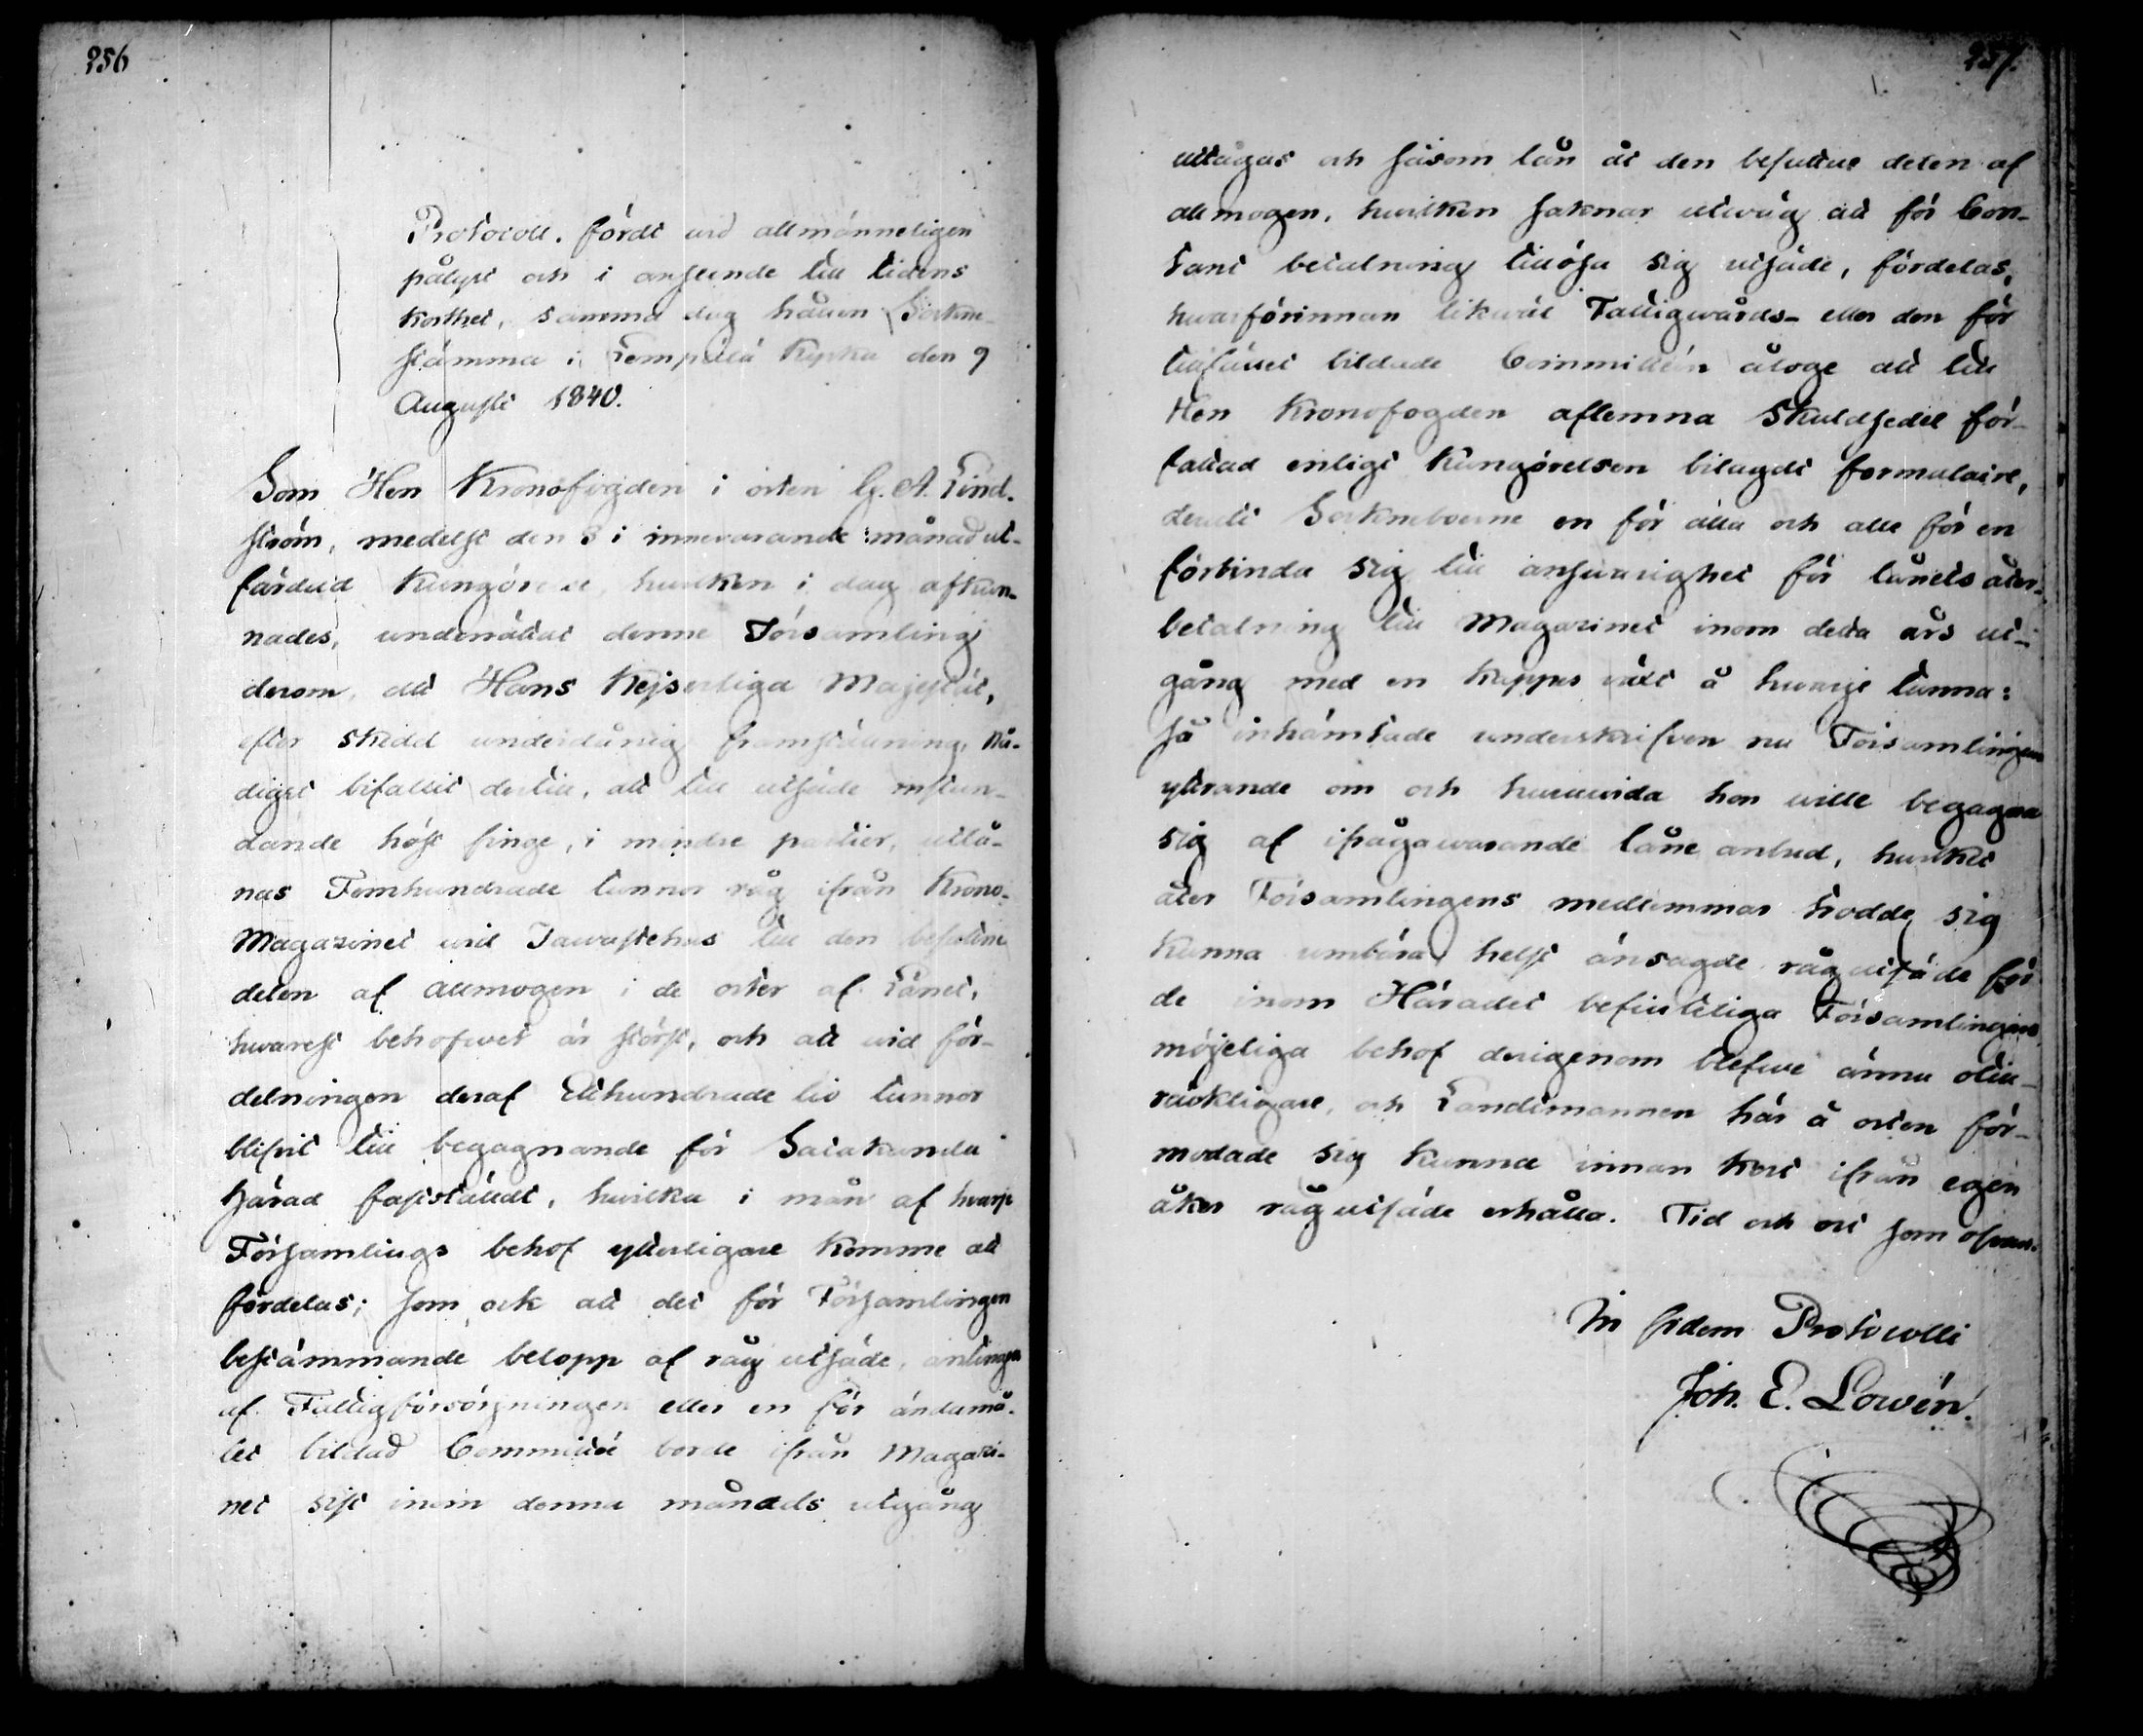 256
Protocoll, fördt wid allmänneligen
pålyst och i anseende till tidens
korthet, samma dag hållen Sockne-
stämma i Lempälä Kyrka den 9
Augusti 1840.
Som Herr Kronofogden i orten G. A. Lind-
ström, medelst den 3 i innevarande månad ut-
färdad Kungörelse, hvilken i dag afkun-
nades, underrättat denne Församling
derom, att Hans Kejserliga Majestät,
efter skedd underdånig framställning, Nå-
digst bifallit dertill, att till utsäde instun-
dande höst finge, i mindre partier, utlå-
nas Femhundrade tunnor råg ifrån Krono-
Magazinet wid Tawastehus till den besutne
delen af Allmogen i de orter af Länet,
hwarest behofwet är störst, och att wid för-
delningen deraf Etthundrade tio tunnor
blifvit till begagnande för Satakunda
Härad fastställdt, hvilka i mån af hvarje
Församlings behof ytterligare komme att
fördelas; som ock att det för Församlingen
bestämmande belopp af råg utsäde, antingen
af Fattigförsörjningen eller en för ändamå-
let bildad Committé borde ifrån Magazi-
net sist inom denna månads utgång
257.
uttagas och såsom lån åt den besuttne delen af
allmogen, hwilken saknar utwäg att för Con-
tant betalning tillösa sig utsäde, fördelas,
hwarförinnan likwäl Fattigwårds- eller den för
tillfället bildade Committéen åloge att till
Herr Kronofogden aflemna Skuldsedel för-
fattad enligt Kungörelsen bilagdt formulaire,
deruti Sockneboerne en för alla och alle för en
förbinda sig till answarighet för lånets åter-
betalning till Magazinet inom detta års ut-
gång med en kappes växt å hwarje tunna:
så inhämtade underskrifven nu Församlingens
yttrande om och huruwida hon wille begagna
sig af ifrågawarande låne anbud, hwilket
åter Församlingens medlemmar trodde sig
kunna umbära, helst ansagde råg utsäde för
de inom Häradet befintteliga Församlingars
möjeliga behof derigenom blefwe ännu otill-
räckligare, och Landtmannen här å orten för-
modade sig kunna innan kort ifrån egen
åker råg utsäde erhålla. Tid och ort som ofvan.
In fidem Protocolli
Joh. E. Lowén.